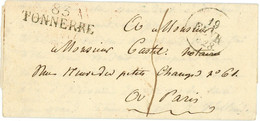 83
TONNERRE
A Monsieur
Monsieur Castel Notaire
Rue Neuve des petits Champs No 61.
A Paris